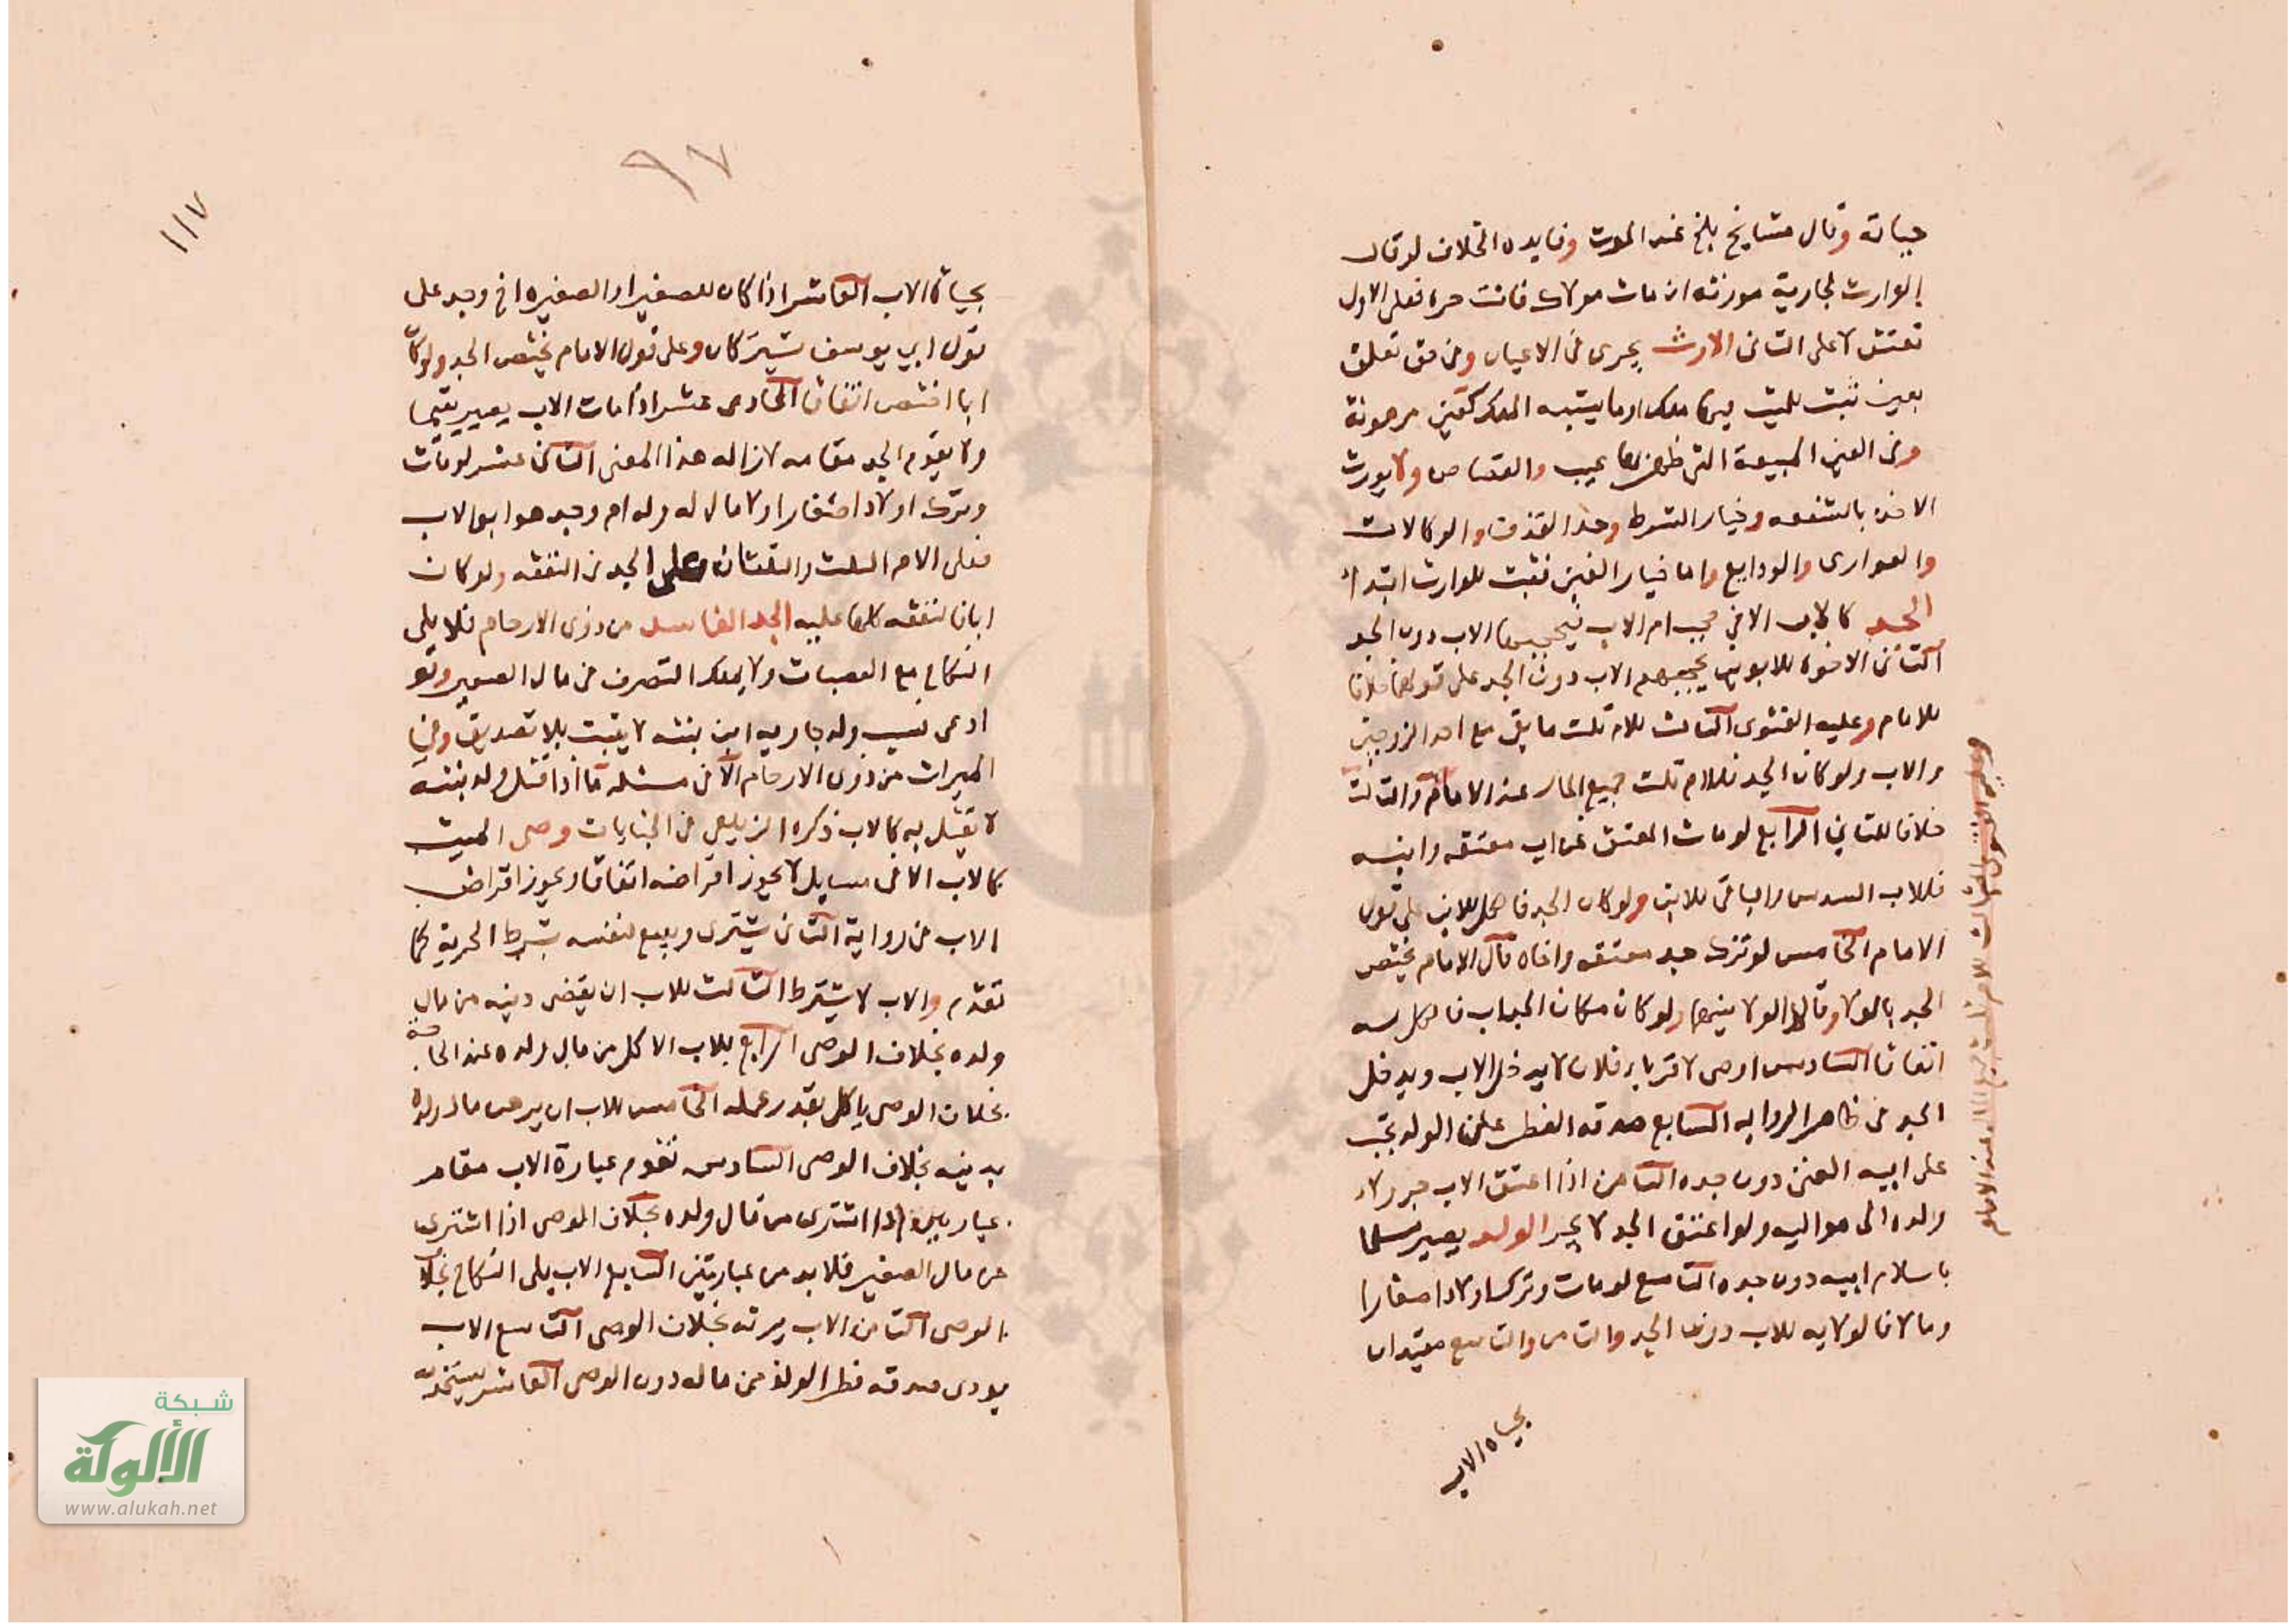 حياته وقال مشايخ بلخ عند الموت وفايده الخلاف لو قال
الوارث لجارية مورثه ان مات مولاك فانت حره فعلى الاول
تعتق لا على الثانى الارث يجرى فى الاعيان وفى حق تعلق
بعين ثبت للميت فيها ملك او ما يشبه الملك كعين مرهونة
وفى العين المبيعة التى ظهر بها عيب والقصاص ولا يورث
الاخذ بالشفعه وخيار الشرط وحد القذف والوكالات
والعوارى والودايع واما خيار العين فثبت للوارث ابتداء
الجد كالاب الا فى حجب ام الاب فيحجبها الاب دون الجد
الثانى الاخوة للابوين يحجبهم الاب دون الجد على قولهما خلافا
للامام وعليه الفتوى الثالث للام ثلث ما بقى مع احد الزوجين
والاب ولو كان الجد فللام ثلث جميع المال عند الامام والثالث
خلافا للثانى الرابع لو مات المعتق عن اب معتقه وابنه
فللاب السدس والباقى للابن ولو كان الجد فالكل للابن على قول
الامام الخامس لو ترك جد معتقه واخاه قال الامام يختص
الجد بالولا وقالا الولا بينهما ولو كان مكان الجد اب فالكل له
اتفاقا السادس اوصى لاقربا فلان لا يدخل الاب ويدخل
الجد فى ظاهر الروايه السابع صدقه الفطر على الولد تجب
على ابيه الغنى دون جده الثامن اذا اعتق الاب جر ولا
ولده الى مواليه ولو اعتق الجد لا يجر الولد يصير مسلما
باسلام ابيه دون جده التاسع لو مات وترك اولادا صغارا
ومالا فالولايه للاب دون الجد والثامن والتاسع مقيدان
بحياه الاب
وعليه الفتوى الثالث للام ثلث جميع المال عند الامام
٩٧
١١٧
بحياة الاب العاشر اذا كان للصغير او الصغيره اخ وجد على
قول ابي يوسف يشتركان وعلى قول الامام يختص الجد ولو كان
ابا اختص اتفاقا الحادى عشر اذا مات الاب يصير يتيما
ولا يقوم الجد مقامه لازاله هذا المعنى الثانى عشر لو مات
وترك اولادا صغارا ولا مال له وله ام وجد هو ابو الاب
فعلى الام الثلث والثلثان على الجد فى النفقه ولو كان
ابا فالنفقه كلها عليه الجد الفاسد من ذوى الارحام فلا يلى
النكاح مع العصبات ولا يملك التصرف فى مال الصغير ولو
ادعى نسب ولد جاريه ابن بنته لا يثبت بلا تصديق وفى
الميراث من ذوى الارحام الا فى مسئله ما اذا قتل ولد بنته
لا يقتل به كالاب ذكره الزيلعى فى الجنايات وصى الميت
كالاب الا فى مسايل لا يجوز اقراضه اتفاقا ويجوز اقراض
الاب فى رواية الثانى يشترى ويبيع لنفسه بشرط الخيرية كما
تقدم والاب لا يشترط الثالث للاب ان يقضى دينه من مال
ولده بخلاف الوصى الرابع للاب الاكل من مال ولده عند الحاجة
بخلاف الوصى ياكل بقدر عمله الخامس للاب ان يرهن مال ولده
بدينه بخلاف الوصى السادس تقوم عبارة الاب مقام
عبارتين اذا اشترى من مال ولده بخلاف الوصى اذا اشترى
من مال الصغير فلا بد من عبارتين السابع الاب يلى النكاح بخلاف
الوصى الثامن الاب يرثه بخلاف الوصى التاسع الاب
يودى صدقه فطر الولد من ماله دون الوصى العاشر يستخدمه
شبكة
الألوكة
www.alukah.net